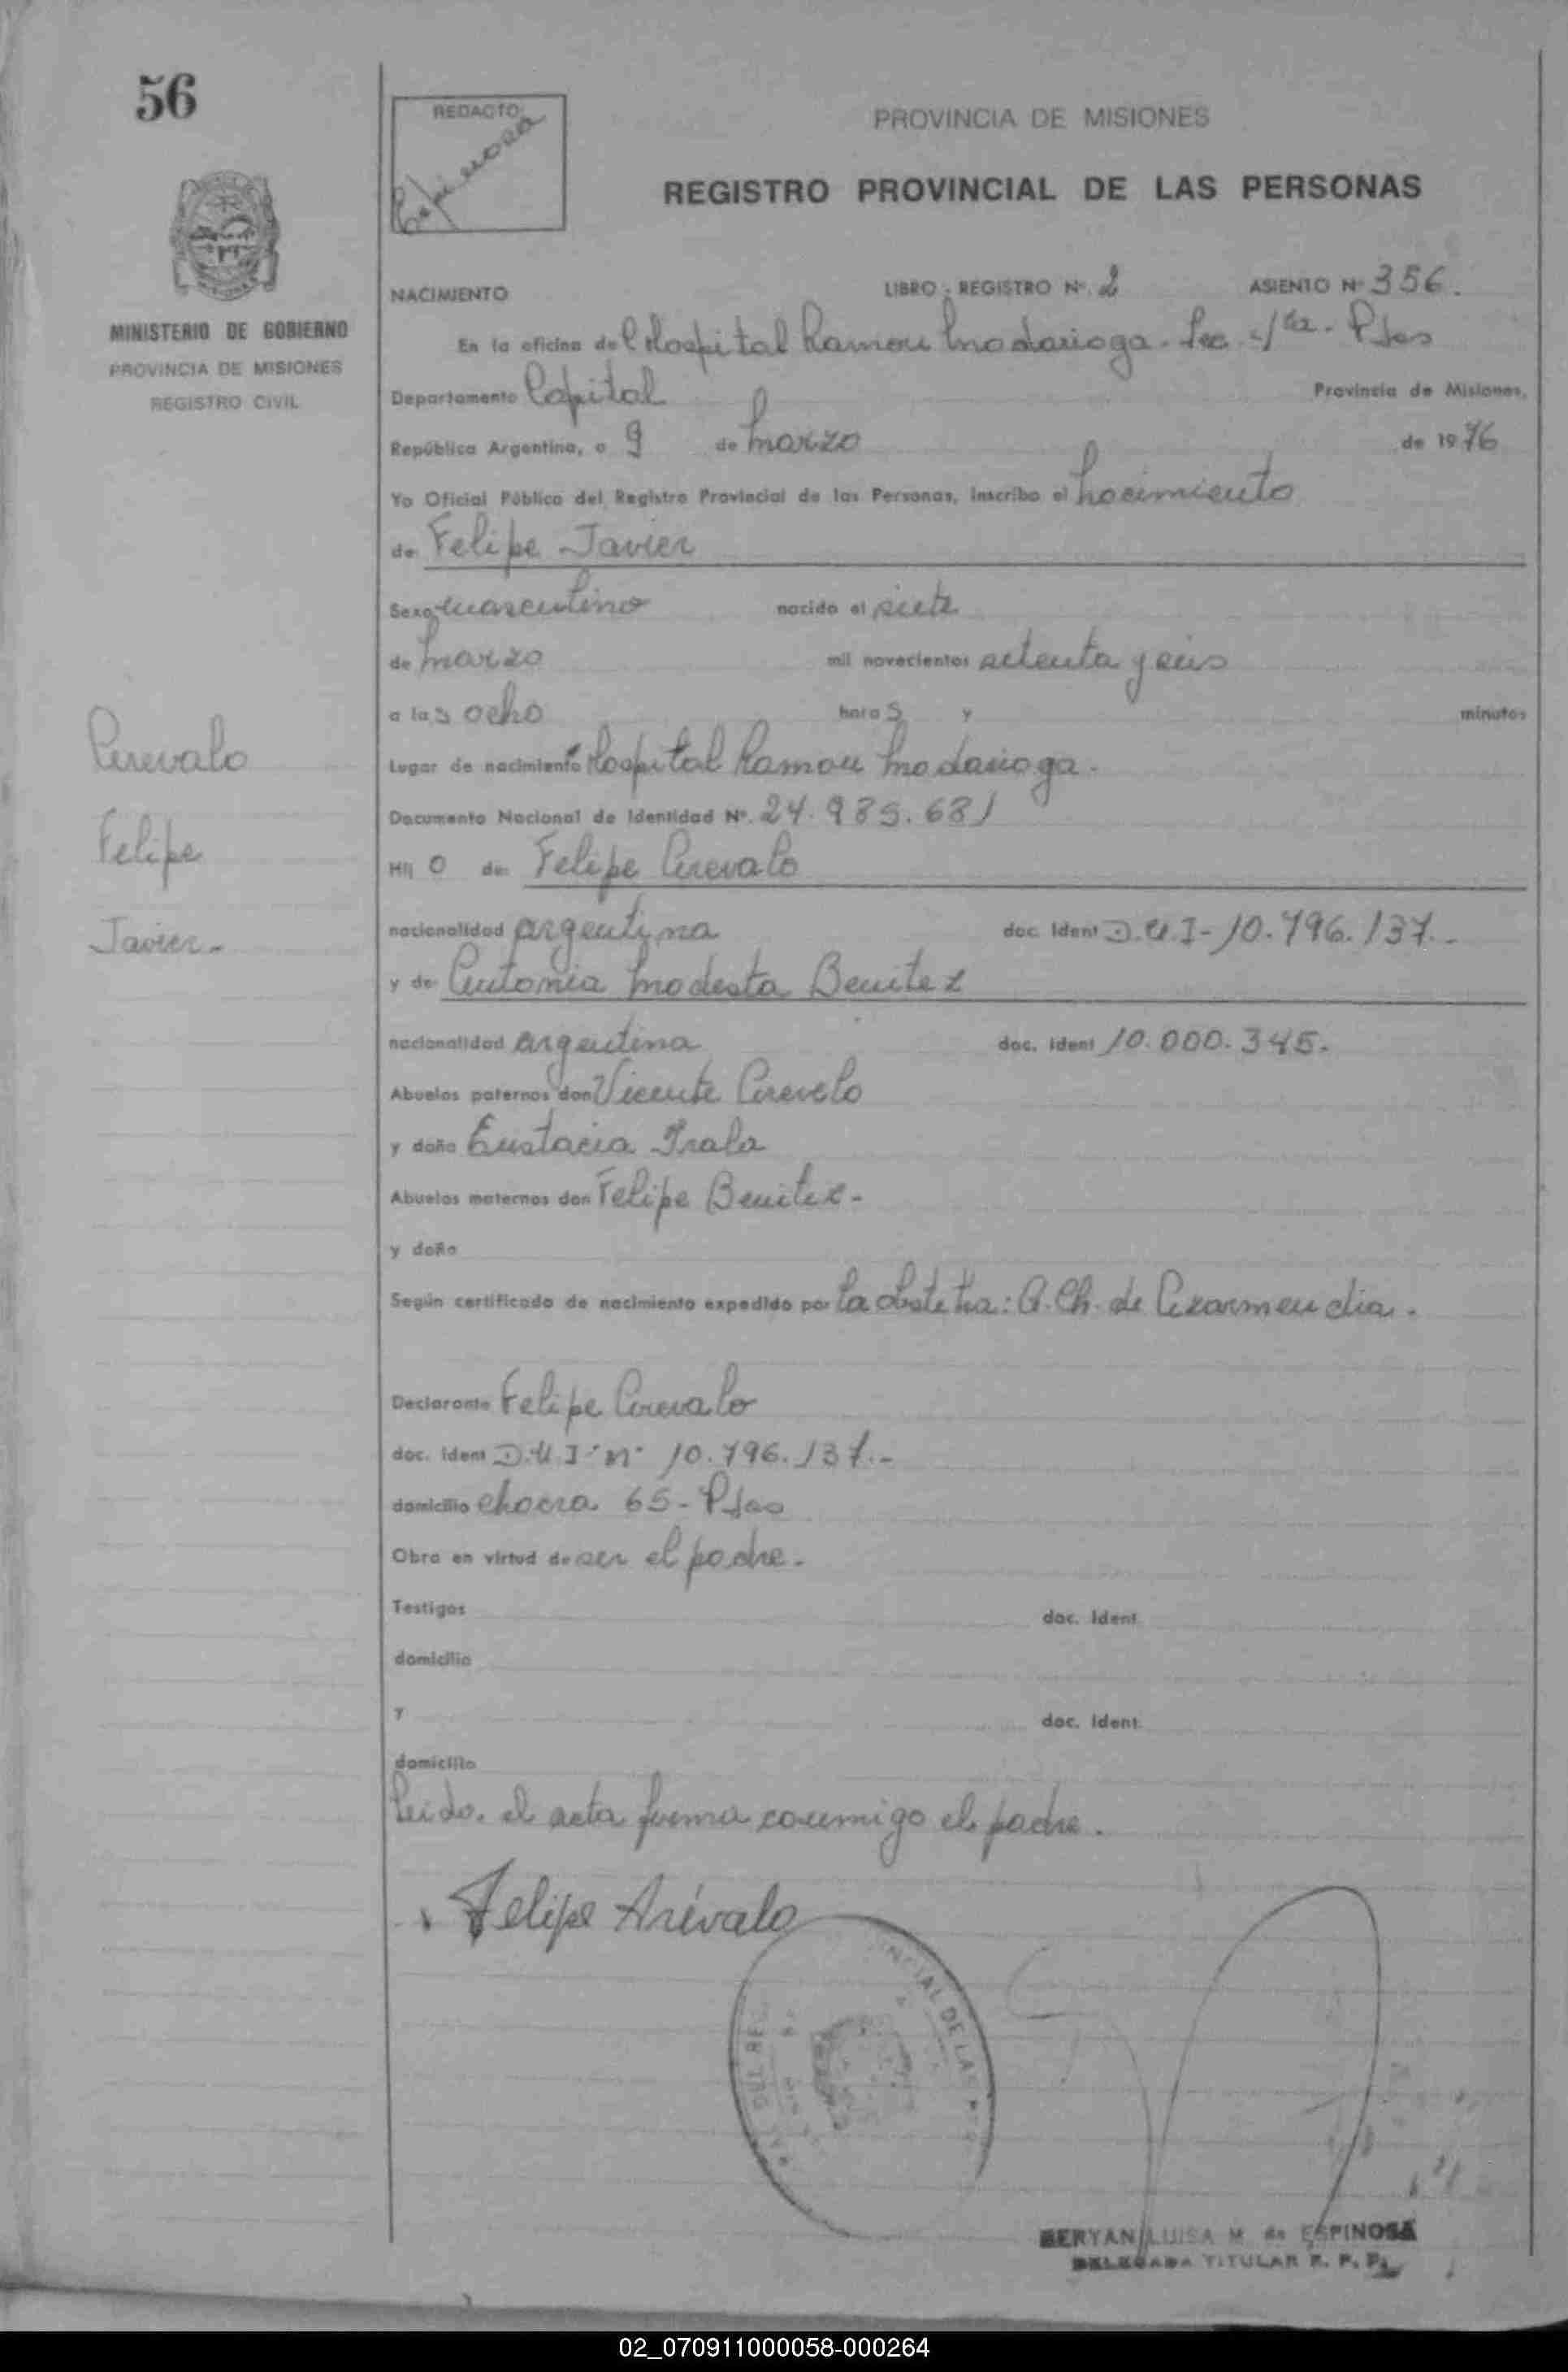 56
REDACTO:
Espinosa
PROVINCIA DE MISIONES
REGISTRO PROVINCIAL DE LAS PERSONAS
MINISTERIO DE GOBIERNO
PROVINCIA DE MISIONES
REGISTRO CIVIL
NACIMIENTO LIBRO - REGISTRO Nº. 2 ASIENTO Nº 356.
En la oficina del Hospital Ramon Madariaga. Sec. 4ta. Pdas
Departamento Capital Provincia de Misiones,
República Argentina, a 9 de Marzo de 1976
Yo Oficial Público del Registro Provincial de las Personas, inscribo el Nacimiento
de Felipe Javier
Sexo masculino nacido el siete
de Marzo mil novecientos setenta y seis
a las ocho horas y minutos
Lugar de nacimiento Hospital Ramon Madariaga.
Documento Nacional de Identidad Nº. 24.985.681
Hijo de Felipe Arevalo
nacionalidad argentina doc. Ident D.U.I- 10.796.137.-
y de Antonia Modesta Benitez
nacionalidad argentina doc. Ident 10.000.345.
Abuelos paternos don Vicente Arevalo
y doña Eustacia Irala
Abuelos maternos don Felipe Benitez-
y doña
Según certificado de nacimiento expedido por la obstetra: A. Ch. de Azarmendia.
Declarante Felipe Arevalo
doc. Ident D.U.I-Nº 10.796.137.-
domicilio chacra 65- Pdas
Obra en virtud de ser el padre.
Testigos doc. Ident.
domicilio
Y doc. Ident.
domicilio
Leido. el acta firma conmigo el padre.
Felipe Arévalo
Arevalo
Felipe
Javier-
NCIAL DE LAS
BERYAN LUISA M. de ESPINOSA
DELEGADA TITULAR R. P. P.
02_070911000058-000264